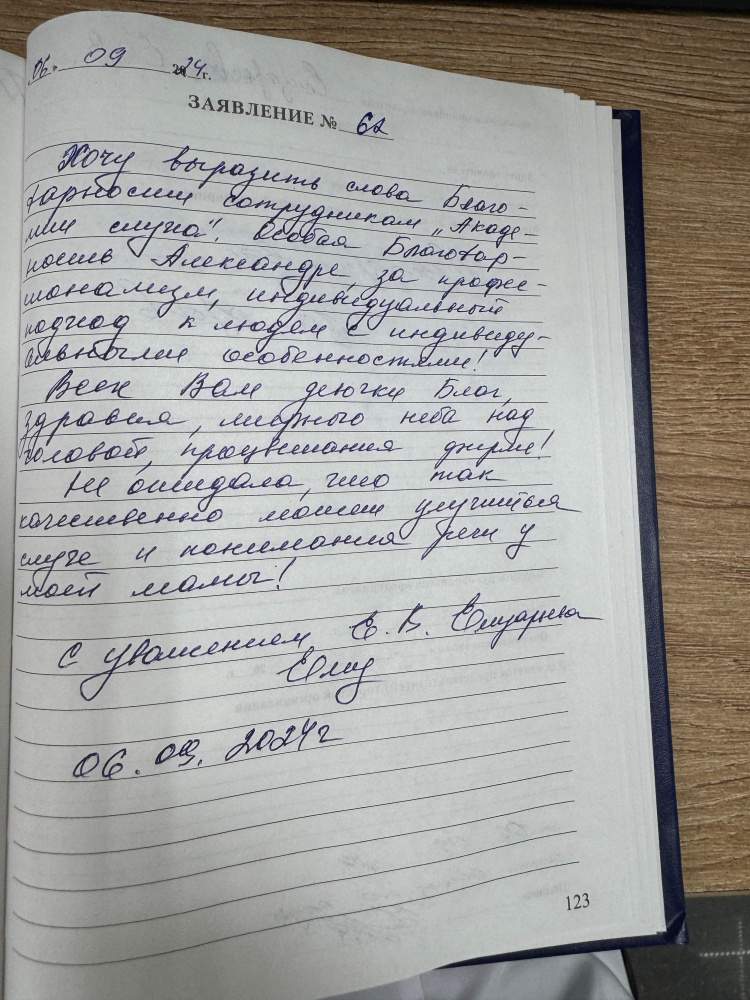 06. 09 2024 г.
ЗАЯВЛЕНИЕ № 62
Хочу выразить слова Благо-
дарности сотрудникам „Акаде-
мии слуха". Особая Благодар-
ность Александре, за профес-
ионализм, индивидуальный
подход к людям с индивиду-
альными особенностями!
Всех Вам девочки Благ,
здравия, мирного неба над
головой, процветания фирме!
Не ожидала, что так
качественно может улучшиться
слух и понимания речи у
моей мамы!
С уважением Е. В.
06. 09. 2024 г
123